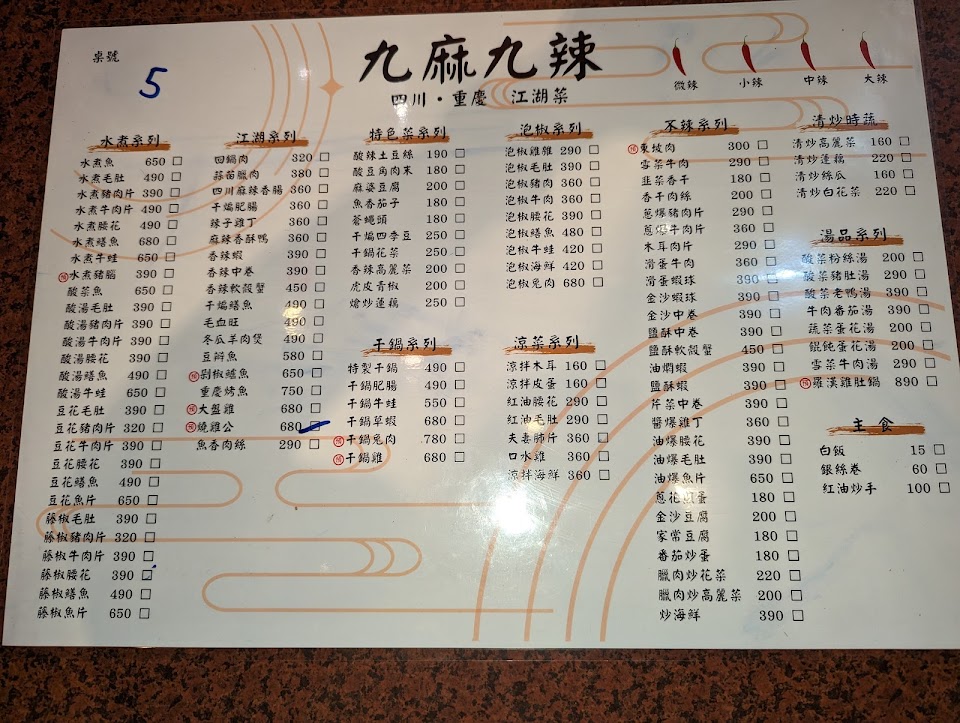 桌號
5
九麻九辣
四川・重慶 江湖菜
微辣 小辣 中辣 大辣
水煮系列
水煮魚 650
水煮毛肚 490
水煮豬肉片 390
水煮牛肉片 490
水煮腰花 490
水煮鱔魚 680
水煮牛蛙 650
預 水煮豬腦 390
酸菜魚 650
酸湯毛肚 390
酸湯豬肉片 390
酸湯牛肉片 390
酸湯腰花 390
酸湯鱔魚 490
酸湯牛蛙 650
豆花毛肚 390
豆花豬肉片 320
豆花牛肉片 390
豆花腰花 390
豆花鱔魚 490
豆花魚片 650
藤椒毛肚 390
藤椒豬肉片 320
藤椒牛肉片 390
藤椒腰花 390
藤椒鱔魚 490
藤椒魚片 650
江湖系列
回鍋肉 320
蒜苗臘肉 380
四川麻辣香腸 360
干煸肥腸 360
辣子雞丁 360
麻辣香酥鴨 360
香辣蝦 390
香辣中卷 390
香辣軟殼蟹 450
干煸鱔魚 490
毛血旺 490
冬瓜羊肉煲 490
豆瓣魚 580
預 剁椒鱸魚 650
重慶烤魚 750
預 大盤雞 680
預 燒雞公 680
魚香肉絲 290
特色菜系列
酸辣土豆絲 190
酸豆角肉末 180
麻婆豆腐 200
魚香茄子 180
蒼蠅頭 180
干煸四季豆 250
干鍋花菜 250
香辣高麗菜 200
虎皮青椒 200
熗炒蓮藕 250
干鍋系列
特製干鍋 490
干鍋肥腸 490
干鍋牛蛙 550
干鍋草蝦 680
預 干鍋兔肉 780
預 干鍋雞 680
泡椒系列
泡椒雞雜 290
泡椒毛肚 390
泡椒豬肉 360
泡椒牛肉 360
泡椒腰花 390
泡椒鱔魚 480
泡椒牛蛙 420
泡椒海鮮 420
泡椒兔肉 680
涼菜系列
涼拌木耳 160
涼拌皮蛋 160
紅油腰花 290
紅油毛肚 290
夫妻肺片 360
口水雞 360
涼拌海鮮 360
不辣系列
預 東坡肉 300
雪菜牛肉 290
韭菜香干 180
香干肉絲 200
蔥爆豬肉片 290
蔥爆牛肉片 360
木耳肉片 290
滑蛋牛肉 360
滑蛋蝦球 390
金沙蝦球 390
金沙中卷 390
鹽酥中卷 390
鹽酥軟殼蟹 450
油燜蝦 390
鹽酥蝦 390
芹菜中卷 390
醬爆雞丁 360
油爆腰花 390
油爆毛肚 390
油爆魚片 650
蔥花煎蛋 180
金沙豆腐 200
家常豆腐 180
番茄炒蛋 180
臘肉炒花菜 220
臘肉炒高麗菜 200
炒海鮮 390
清炒時蔬
清炒高麗菜 160
清炒蓮藕 220
清炒絲瓜 160
清炒白花菜 220
湯品系列
酸菜粉絲湯 200
酸菜豬肚湯 290
酸菜老鴨湯 390
牛肉番茄湯 390
蔬菜蛋花湯 200
餛飩蛋花湯 200
雪菜牛肉湯 290
預 羅漢雞肚鍋 890
主食
白飯 15
銀絲卷 60
紅油炒手 100